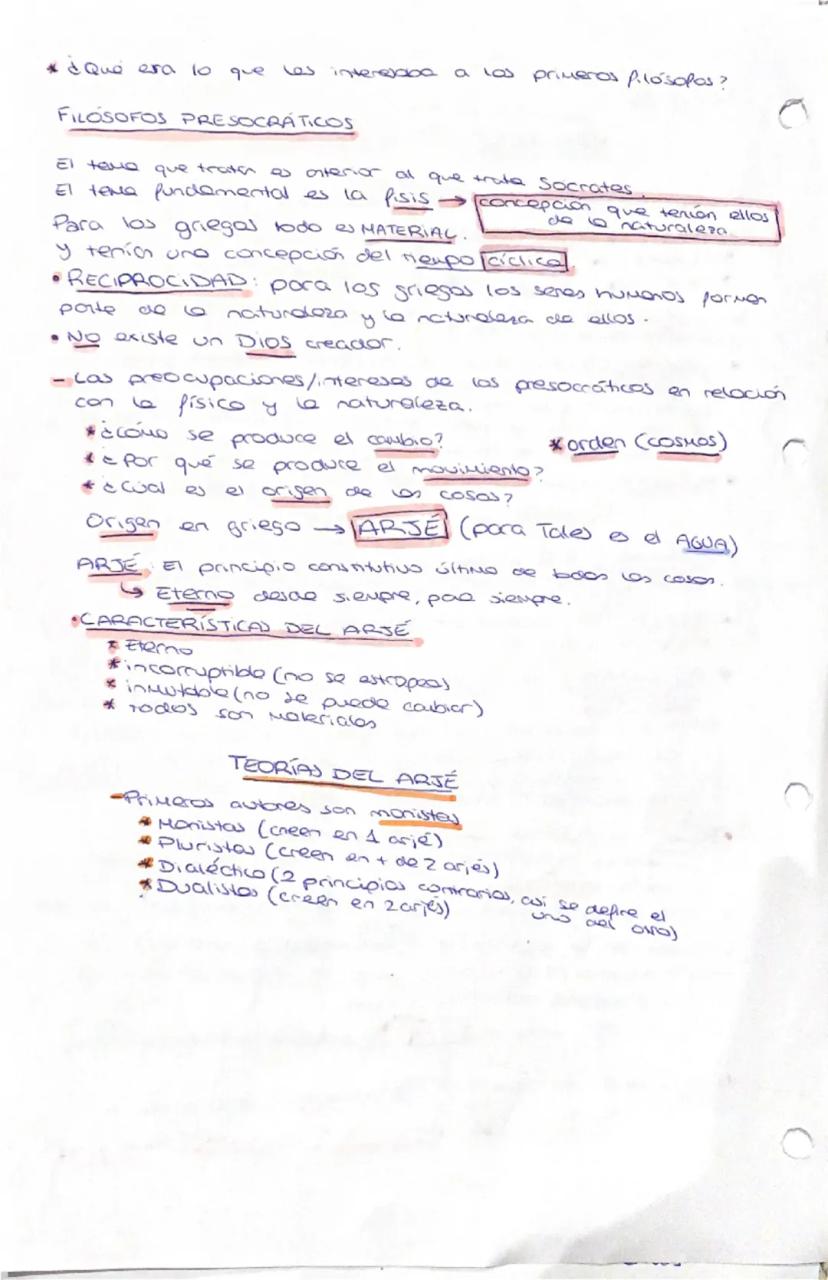 * ¿Qué era lo que les interesaba a los primeros filósofos?
FILÓSOFOS PRESOCRÁTICOS
El tema que tratan es anterior al que trata Sócrates.
El tema fundamental es la fisis → concepción que tenían ellos
de la naturaleza
Para los griegos todo es MATERIAL.
y tenían una concepción del tiempo cíclica
• RECIPROCIDAD: para los griegos los seres humanos forman
parte de la naturaleza y la naturaleza de ellos.
• NO existe un Dios creador.
- Las preocupaciones/intereses de los presocráticos en relación
con la física y la naturaleza.
* ¿Cómo se produce el cambio? * orden (COSMOS)
* ¿Por qué se produce el movimiento?
* ¿Cuál es el origen de las cosas?
Origen en griego → ARJÉ (para Tales es el AGUA)
ARJÉ: El principio constitutivo último de todas las cosas.
↳ Eterno desde siempre, para siempre.
• CARACTERÍSTICAS DEL ARJÉ
* Eterno
* incorruptible (no se estropea)
* inmutable (no se puede cambiar)
* Todos son materiales
TEORÍAS DEL ARJÉ
- Primeros autores son monistas
* Monistas (creen en 1 arjé)
* Pluristas (creen en + de 2 arjés)
* Dialéctica (2 principios contrarios, así se define el
uno del otro)
* Dualistas (creen en 2 arjés)